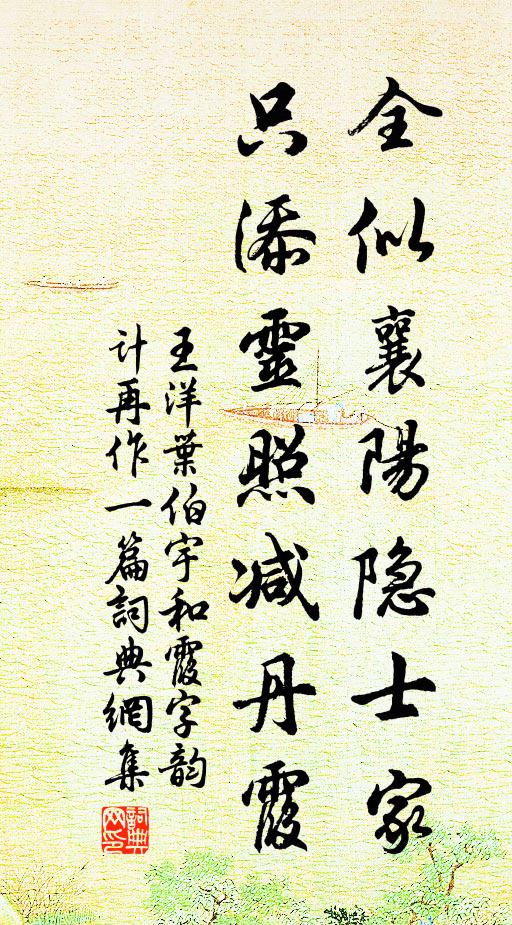 全似襄陽隐士家
只添靈照減丹霞
王洋葉伯宇和霞字韵
计再作一篇詞典網集
詞典網印